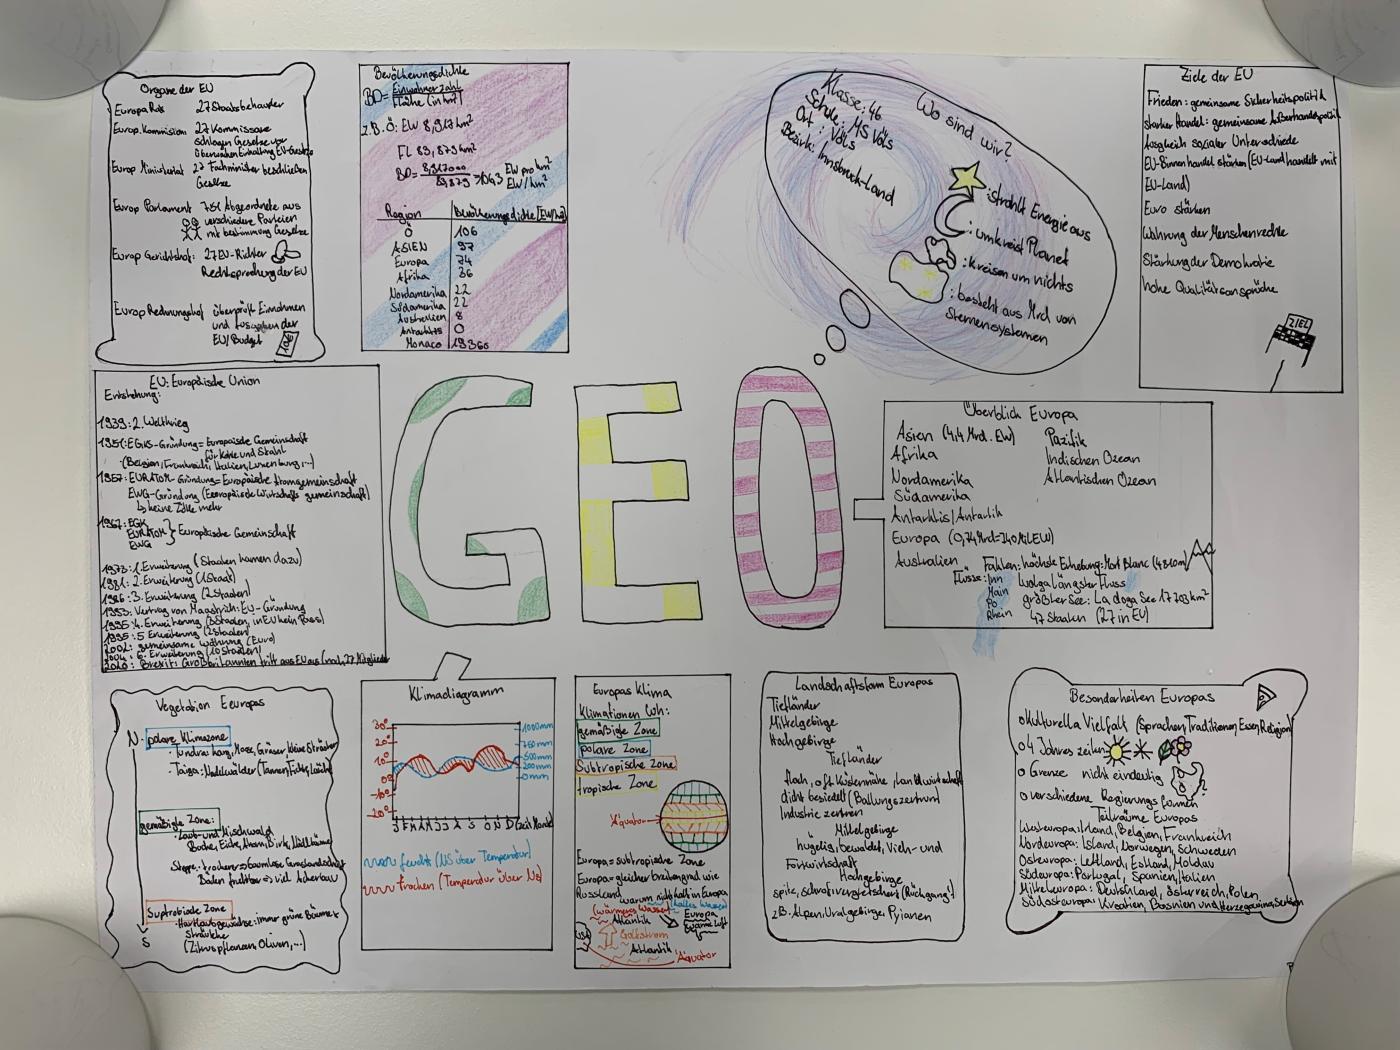 Organe der EU
Europa Rat: 27 Staatsbehaupter
Europ. Kommision 27 Kommissare
schlagen Gesetze vor
Europ Ministerrat 27 Fachminister beschließen
Gesetze
Europ Parlament 751 Abgeordnete aus
verschiedene Parteien
mit bestimmung Gesetze
Europ Gerichtshof: 27 EU-Richter
Rechtsprechung der EU
Europ Rechnungshof überprüft Einnahmen
und Ausgaben der
EU/Budget
Bevölkerungsdichte
BD= Einwohnerzahl
Fläche (in km²)
z.B. Ö: EW 8,917 km²
FL 83,879 km²
BD= 8,917000
83,879
EW pro km²
EW/km²
Region Bevölkerungsdichte [EW/km²]
Ö 106
ASIEN 97
Europa 74
Afrika 36
Nordamerika 22
Südamerika 22
Australien 8
Antarktis 0
Monaco 19360
Klasse: 4b
Schule: MS Völs
Ort: Völs
Bezirk: Innsbruck-Land
Wo sind wir?
: strahlt Energie aus
: umkreist Planet
: kreisen um nichts
: besteht aus Mrd von
Sternensystemen
Ziele der EU
Frieden: gemeinsame Sicherheitspolitik
starker Handel: gemeinsame Außerhandelspolitik
Ausgleich sozialer Unterschiede
EU-Binnenhandel stärken (EU-Land handelt mit
EU-Land)
Euro stärken
Wahrung der Menschenrechte
Stärkung der Demokratie
hohe Qualitätsansprüche
ZIEL
EU: Europäische Union
Entstehung:
1939: 2. Weltkrieg
1951: EGKS-Gründung= Europäische Gemeinschaft
für Kohle und Stahl
(Belgien, Frankreich, Italien, Luxenburg,...)
1957: EURATOM-Gründung= Europäische Atomgemeinschaft
EWG-Gründung (Europäische Wirtschafts gemeinschaft)
↳ keine Zölle mehr
1967: EGK
EURATOM } Europäische Gemeinschaft
EWG
1973: 1. Erweiterung (Staaten kamen dazu)
1981: 2. Erweiterung (1 Staat)
1986: 3. Erweiterung (2 Staaten)
1993: Vertrag von Maastricht: EU-Gründung
1995: 4. Erweiterung (3 Staaten, in EU kein Pass)
1995: 5 Erweiterung (2 Staaten)
2002: gemeinsame Währung (Euro)
2004: 6. Erweiterung (10 Staaten)
2020: Brexit: Großbritannien tritt aus EU aus (nur 27 Mitglieder
GEO
Überblick Europa
Asien (4,4 Mrd. EW) Pazifik
Afrika Indischen Ozean
Nordamerika Atlantischen Ozean
Südamerika
Antarktis/Antarktik
Europa (0,74 Mrd=740 Mil EW)
Australien
Fakten: höchste Erhebung: Mont Blanc (4810m)
Flüsse: Inn Wolga längster Fluss
Main größter See: Ladoga See 17703 km²
Po
Rhein 47 Staaten (27 in EU)
Vegetation Eeuropas
N polare Klimazone
· Tundra: karg, Moose, Gräser, kleine Sträucher
· Taiga: Nadelwälder (Tannen, Fichte, Lärche)
gemäßigte Zone:
· Laub- und Mischwald
Buche, Eiche, Ahorn, Birke, Nadelbäume
Steppe: trocken => baumlose Graslandschaft
Boden fruchtbar => viel Ackerbau
Suptrobische Zone
· Hartlaubgewächse: immer grüne Bäume +
Sträucher
(Zitruspflanzen, Oliven,...)
S
Klimadiagramm
30° 1000mm
20° 750mm
10° 500mm
0° 200mm
-10° 0mm
-20°
J F M A M J J A S O N D (Zeit Monate)
feucht (NS über Temperatur)
trocken (Temperatur über NS)
Europas Klima
Klimationen Wh:
gemäßigte Zone
polare Zone
Subtropische Zone
tropische Zone
Äquator
Europa= subtropische Zone
Europa= gleicher breitengrad wie
Russland warum nicht kalt in Europa
(warmes Wasser) (kaltes Wasser)
Atlantik Europa
USA Golfstrom warme Luft
Atlantik
Äquator
Landschaftsform Europas
Tiefländer
Mittelgebirge
Hochgebirge
Tiefländer
flach, oft Küstennähe, Landwirtschaft
dicht besiedelt (Ballungszentrum)
Industrie zentren
Mittelgebirge
hügelig, bewaldet, Vieh- und
Forstwirtschaft
Hochgebirge
spitz, schroff, vergletschert (Rückgang!)
z.B. Alpen, Uralgebirge, Pyränen
Besonderheiten Europas
o Kulturella Vielfalt (Sprachen, Traditionen, Essen, Religion)
o 4 Jahres zeiten
o Grenze nicht eindeutig
o verschiedene Regierungs formen
Teilräume Europas
Westeuropa: Irland, Belgien, Frankreich
Nordeuropa: Island, Norwegen, Schweden
Osteuropa: Lettland, Estland, Moldau
Südeuropa: Portugal, Spanien, Italien
Mitteleuropa: Deutschland, Österreich, Polen
Südosteuropa: Kroatien, Bosnien und Herzegowina, Serbien